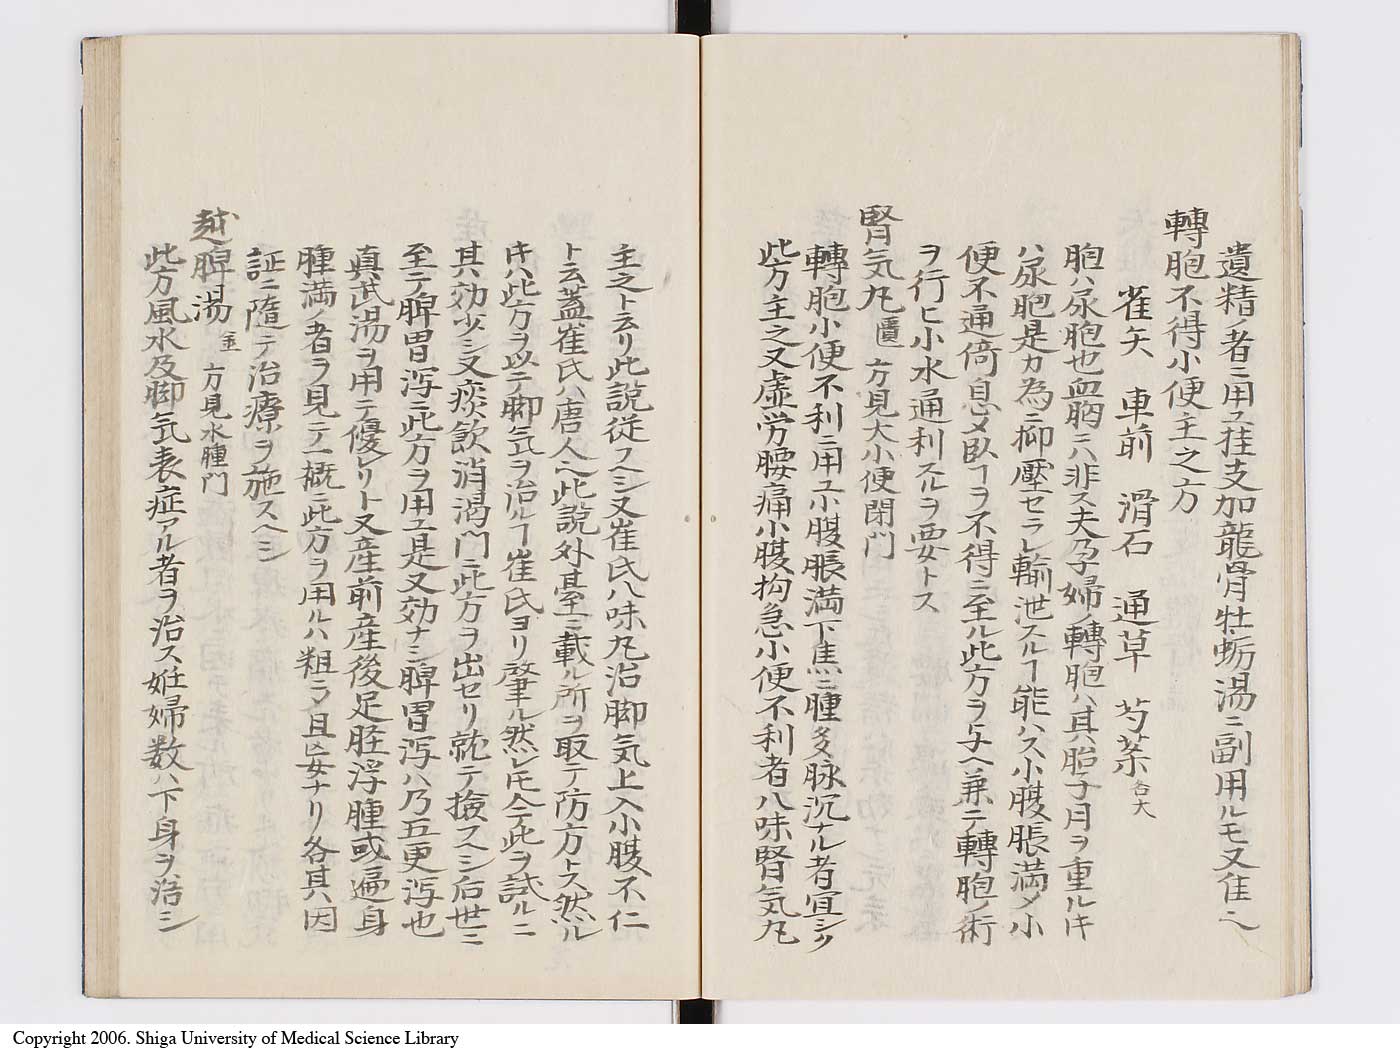 遺精ノ者ニ用ユ桂支加龍骨牡蛎湯ニ副用ルモ又隹ヘ
轉胞不得小便主之方
雀矢 車前 滑石 通草 芍薬 各大
胞ハ尿胞也血胸ニハ非ス夫孕婦ノ轉胞ハ其胎子月ヲ重ルキ
ハ尿胞是カ為ニ抑壓セラレ輸泄スルヿ能ハス小腹脹満〆小
便不通倚息〆臥ヿヲ不得ニ至ル此方ヲ与ヘ兼テ轉胞ノ術
ヲ行ヒ小水通利スルヲ要トス
腎気丸 匱 方見大小便閉門
轉胞小便不利ニ用ユ小腹脹満下焦ニ腫多脉沉ナル者宜シク
此方主之又虚労腰痛小腹拘急小便不利者八味腎気丸
主之ト云リ此説従フヘシ又崔氏八味丸治脚気上入小腹不仁
ト云蓋崔氏ハ唐人ヘ此説外臺ニ載ル所ヲ取テ防方トス然ル
キハ此方ヲ以テ脚気ヲ治ルヿ崔氏ヨリ肇ル然レ𪜈今此ヲ試ルニ
其効少シ又痰飲消渇門ニ此方ヲ出セリ就テ撿スヘシ后世ニ
至テ脾胃瀉ニ此方ヲ用ユ是又効ナシ脾胃瀉ハ乃五更瀉也
真武湯ヲ用テ優レリト又産前産後足胫浮腫或遍身
腫満ノ者ヲ見テ一概ニ此方ヲ用ルハ粗ニ〆且妄ナリ各其因
証ニ隨テ治療ヲ施スヘシ
越脾湯 仝 方見水腫門
此方風水及脚気表症アル者ヲ治ス妊婦数ハ下身ヲ治シ
Copyright 2006. Shiga University of Medical Science Library